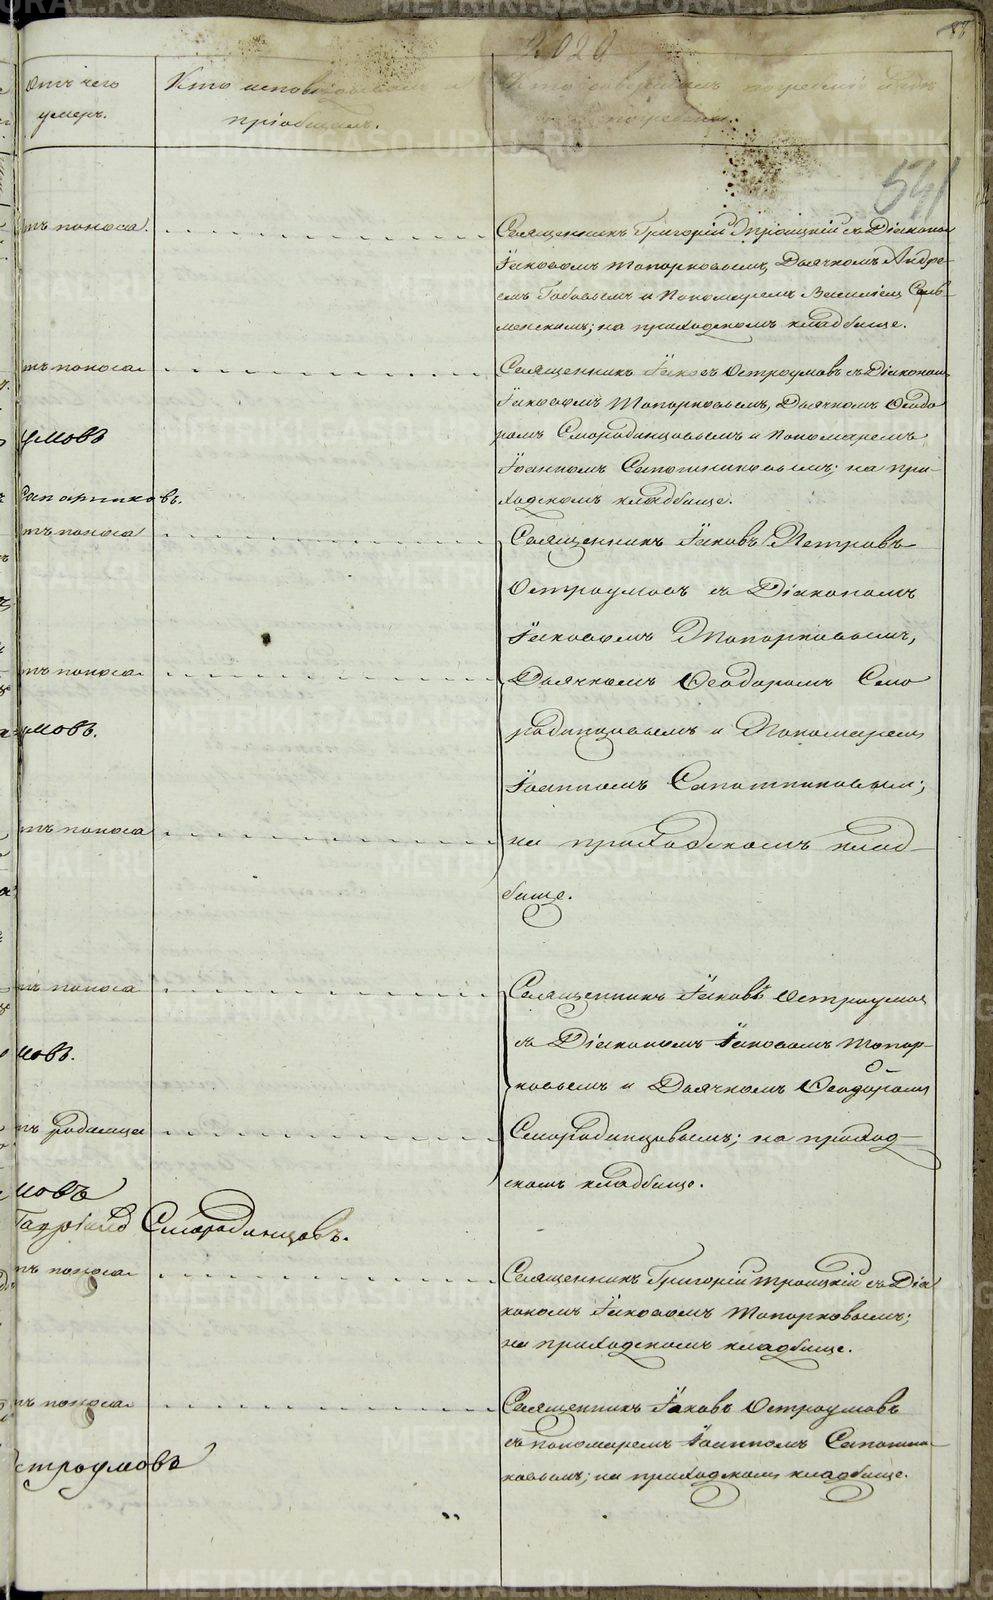 отъ чего
умеръ.
Кто исповѣдывалъ и
пріобщалъ.
Кто совершалъ погребеніе и гдѣ
погребены.
541
тъ поноса.
Священникъ Григорій Троицкій съ Діакономъ
Іаковомъ Топорковымъ, Дьячкомъ Андре-
емъ и Пономаремъ Василіемъ
на приходскомъ кладбище.
тъ поноса
Священникъ Іаковъ Остроумовъ съ Діакономъ
Іаковомъ Топорковымъ, Дьячкомъ Ѳеодо
ромъ Смородинцовымъ и Пономаремъ
умовъ
Іоанномъ Сапожниковымъ; на при-
ходскомъ кладбище.
Сапожниковъ.
тъ поноса
Священникъ Іаковъ Петровъ
Остроумовъ съ Діакономъ
Іаковомъ Топорковымъ,
тъ поноса
Дьячкомъ Ѳеодоромъ Смо
родинцовымъ и Пономаремъ
умовъ.
Іоанномъ Сапожниковымъ;
тъ поноса
на приходскомъ клад-
бище.
тъ поноса
Священникъ Іаковъ Остроумов
съ Діакономъ Іаковомъ Топор-
мовъ.
ковымъ и Дьячкомъ Ѳеодоромъ
тъ родимца
Смородинцовымъ; на приход-
скомъ кладбище.
мовъ
Гавріилъ Смородинцовъ.
тъ поноса
Священникъ Григорій Троицкій съ Діа
кономъ Іаковомъ Топорковымъ;
на приходскомъ кладбище.
тъ поноса
Священникъ Іаковъ Остроумовъ
съ пономаремъ Іоанномъ Сапожни-
ковымъ; на приходскомъ кладбище.
строумовъ
METRIKI.GASO-URAL.RU